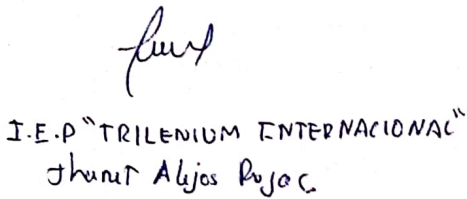 I.E.P "TRILENIUM INTERNACIONAL"
Jhanet Alejos Rojas